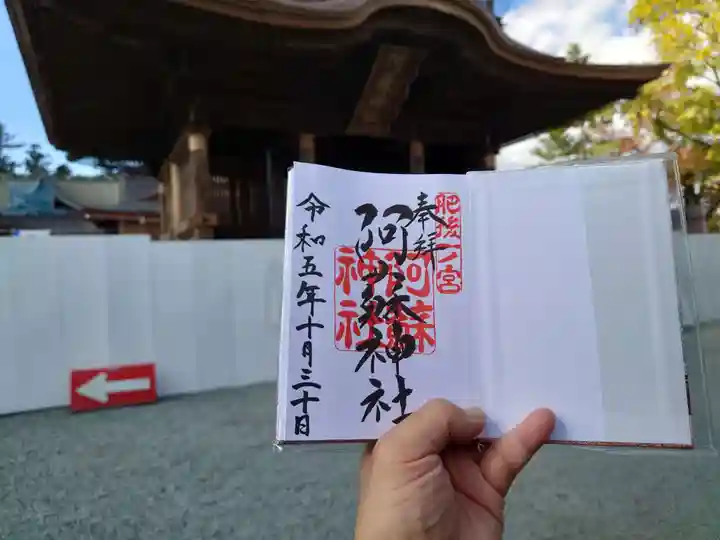 奉拝
肥後一ノ宮
阿蘇神社
阿蘇神社
令和五年十月三十日